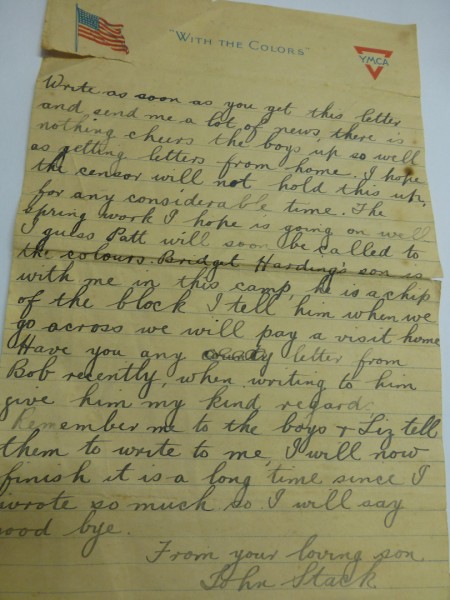 "WITH THE COLORS"
YMCA
Write as soon as you get this letter
and send me a lot of news, there is
nothing cheers the boys up so well
as getting letters from home. I hope
the censor will not hold this up,
for any considerable time. The
Spring work I hope is going on well
I guess Patt will soon be called to
the colours. Bridget Harding's son is
with me in this camp, he is a chip
of the block I tell him when we
go across we will pay a visit home
Have you any letter from
Bob recently, when writing to him
give him my kind regard.
Remember me to the boys & Liz tell
them to write to me, I will now
finish it is a long time since I
wrote so much so I will say
good bye.
From your loving son
John Stack